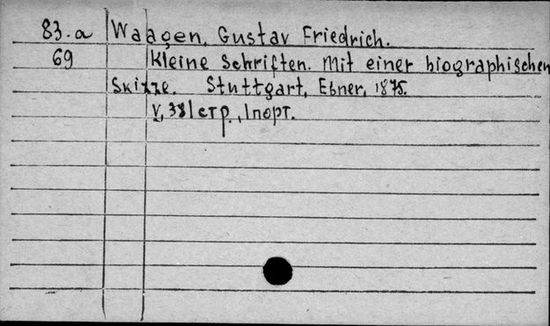 83.a Waagen, Gustav Friedrich.
69 Kleine Schriften. Mit einer biographischen
Skizze. Stuttgart, Ebner, 1875.
V, 381 стр., 1 порт.